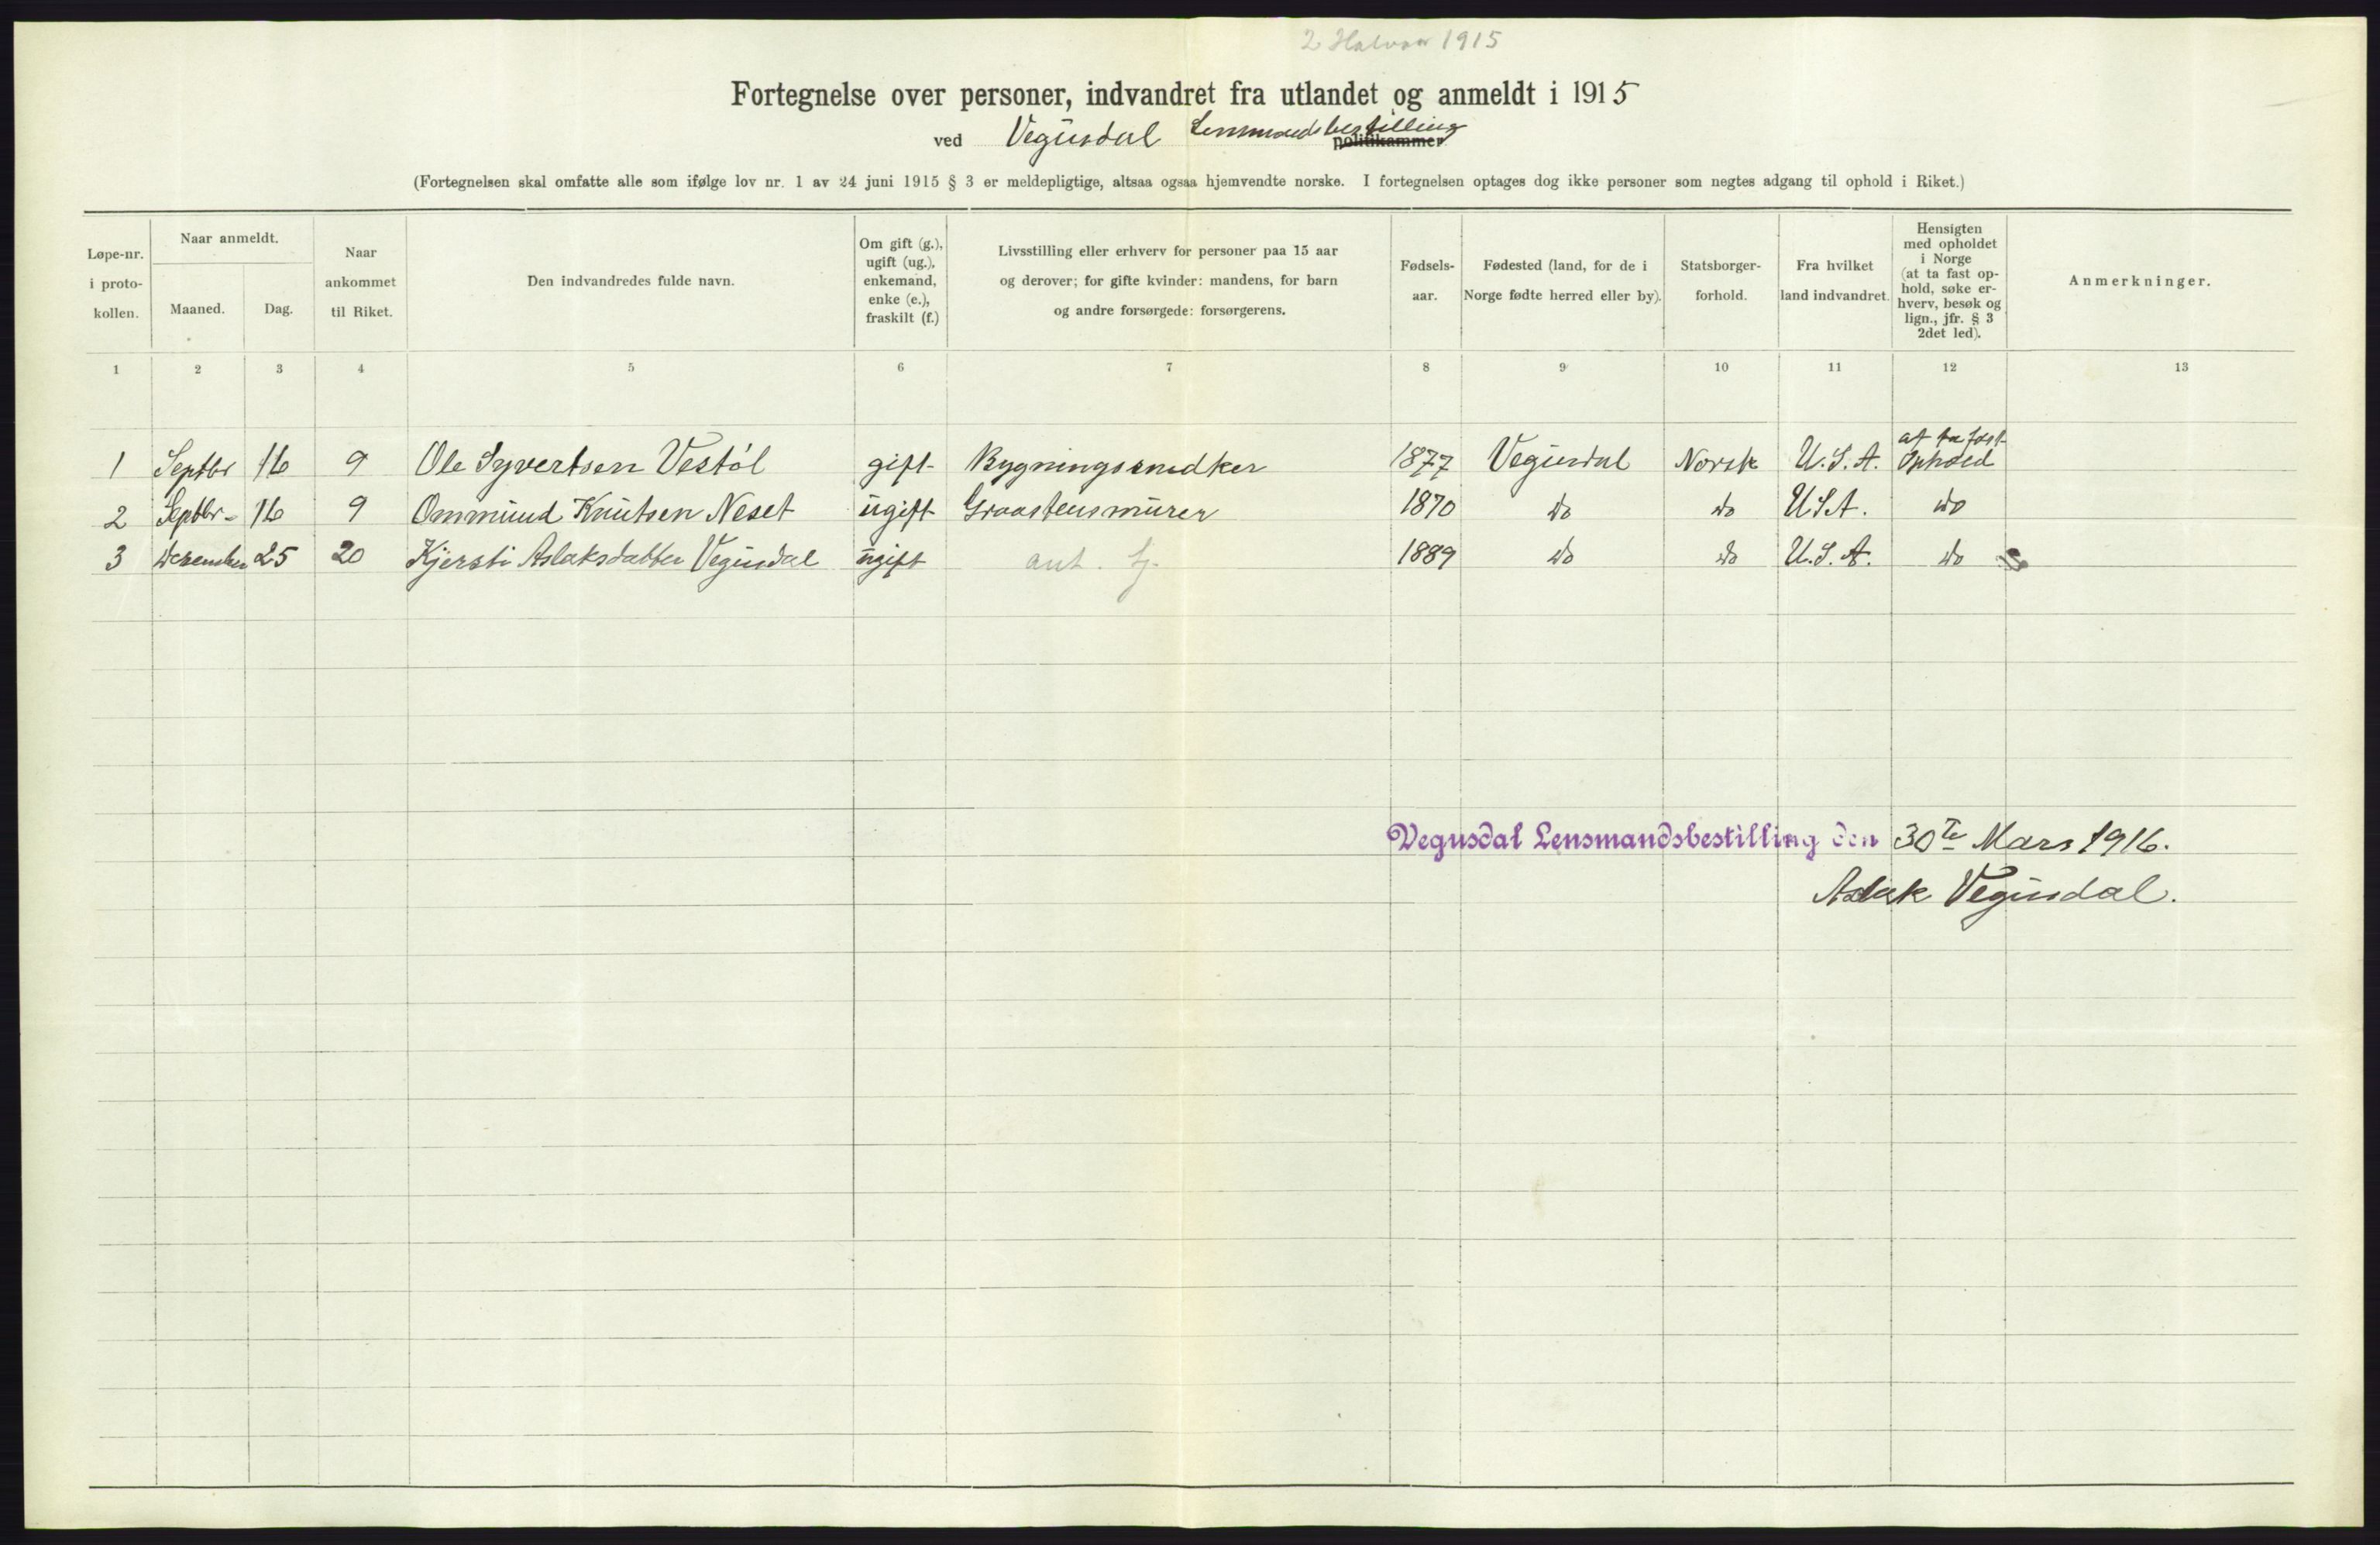 2 Halvaar 1915
Fortegnelse over personer, indvandret fra utlandet og anmeldt i 1915
ved Vegusdal Lensmandsbestilling politikammer
(Fortegnelsen skal omfatte alle som ifølge lov nr. 1 av 24 juni 1915 § 3 er meldepligtige, altsaa ogsaa hjemvendte norske. I fortegnelsen optages dog ikke personer som negtes adgang til ophold i Riket.)
Løpe-nr.
i proto-
kollen.
Naar anmeldt.
Maaned.
Dag.
Naar
ankommet
til Riket.
Den indvandredes fulde navn.
Om gift (g.),
ugift (ug.),
enkemand,
enke (e.),
fraskilt (f.)
Livsstilling eller erhverv for personer paa 15 aar
og derover; for gifte kvinder: mandens, for barn
og andre forsørgede: forsørgerens.
Fødsels-
aar.
Fødested (land, for de i
Norge fødte herred eller by).
Statsborger-
forhold.
Fra hvilket
land indvandret.
Hensigten
med opholdet
i Norge
(at ta fast op-
hold, søke er-
hverv, besøk og
lign., jfr. § 3
2det led).
Anmerkninger.
1 2 3 4 5 6 7 8 9 10 11 12 13
at ta fast
1 Septbr 16 9 Ole Syvertsen Vestøl gift Bygningssnedker 1877 Vegusdal Norsk U.S.A. Ophold
2 Septbr- 16 9 Ommund Knutsen Neset ugift Graastensmurer 1870 do do U.S.A. do
3 Desember 25 20 Kjersti Aslaksdatter Vegusdal ugift ant. tj. 1889 do do U.S.A. do
Vegusdal Lensmandsbestilling den 30te Mars 1916.
Aslak Vegusdal.